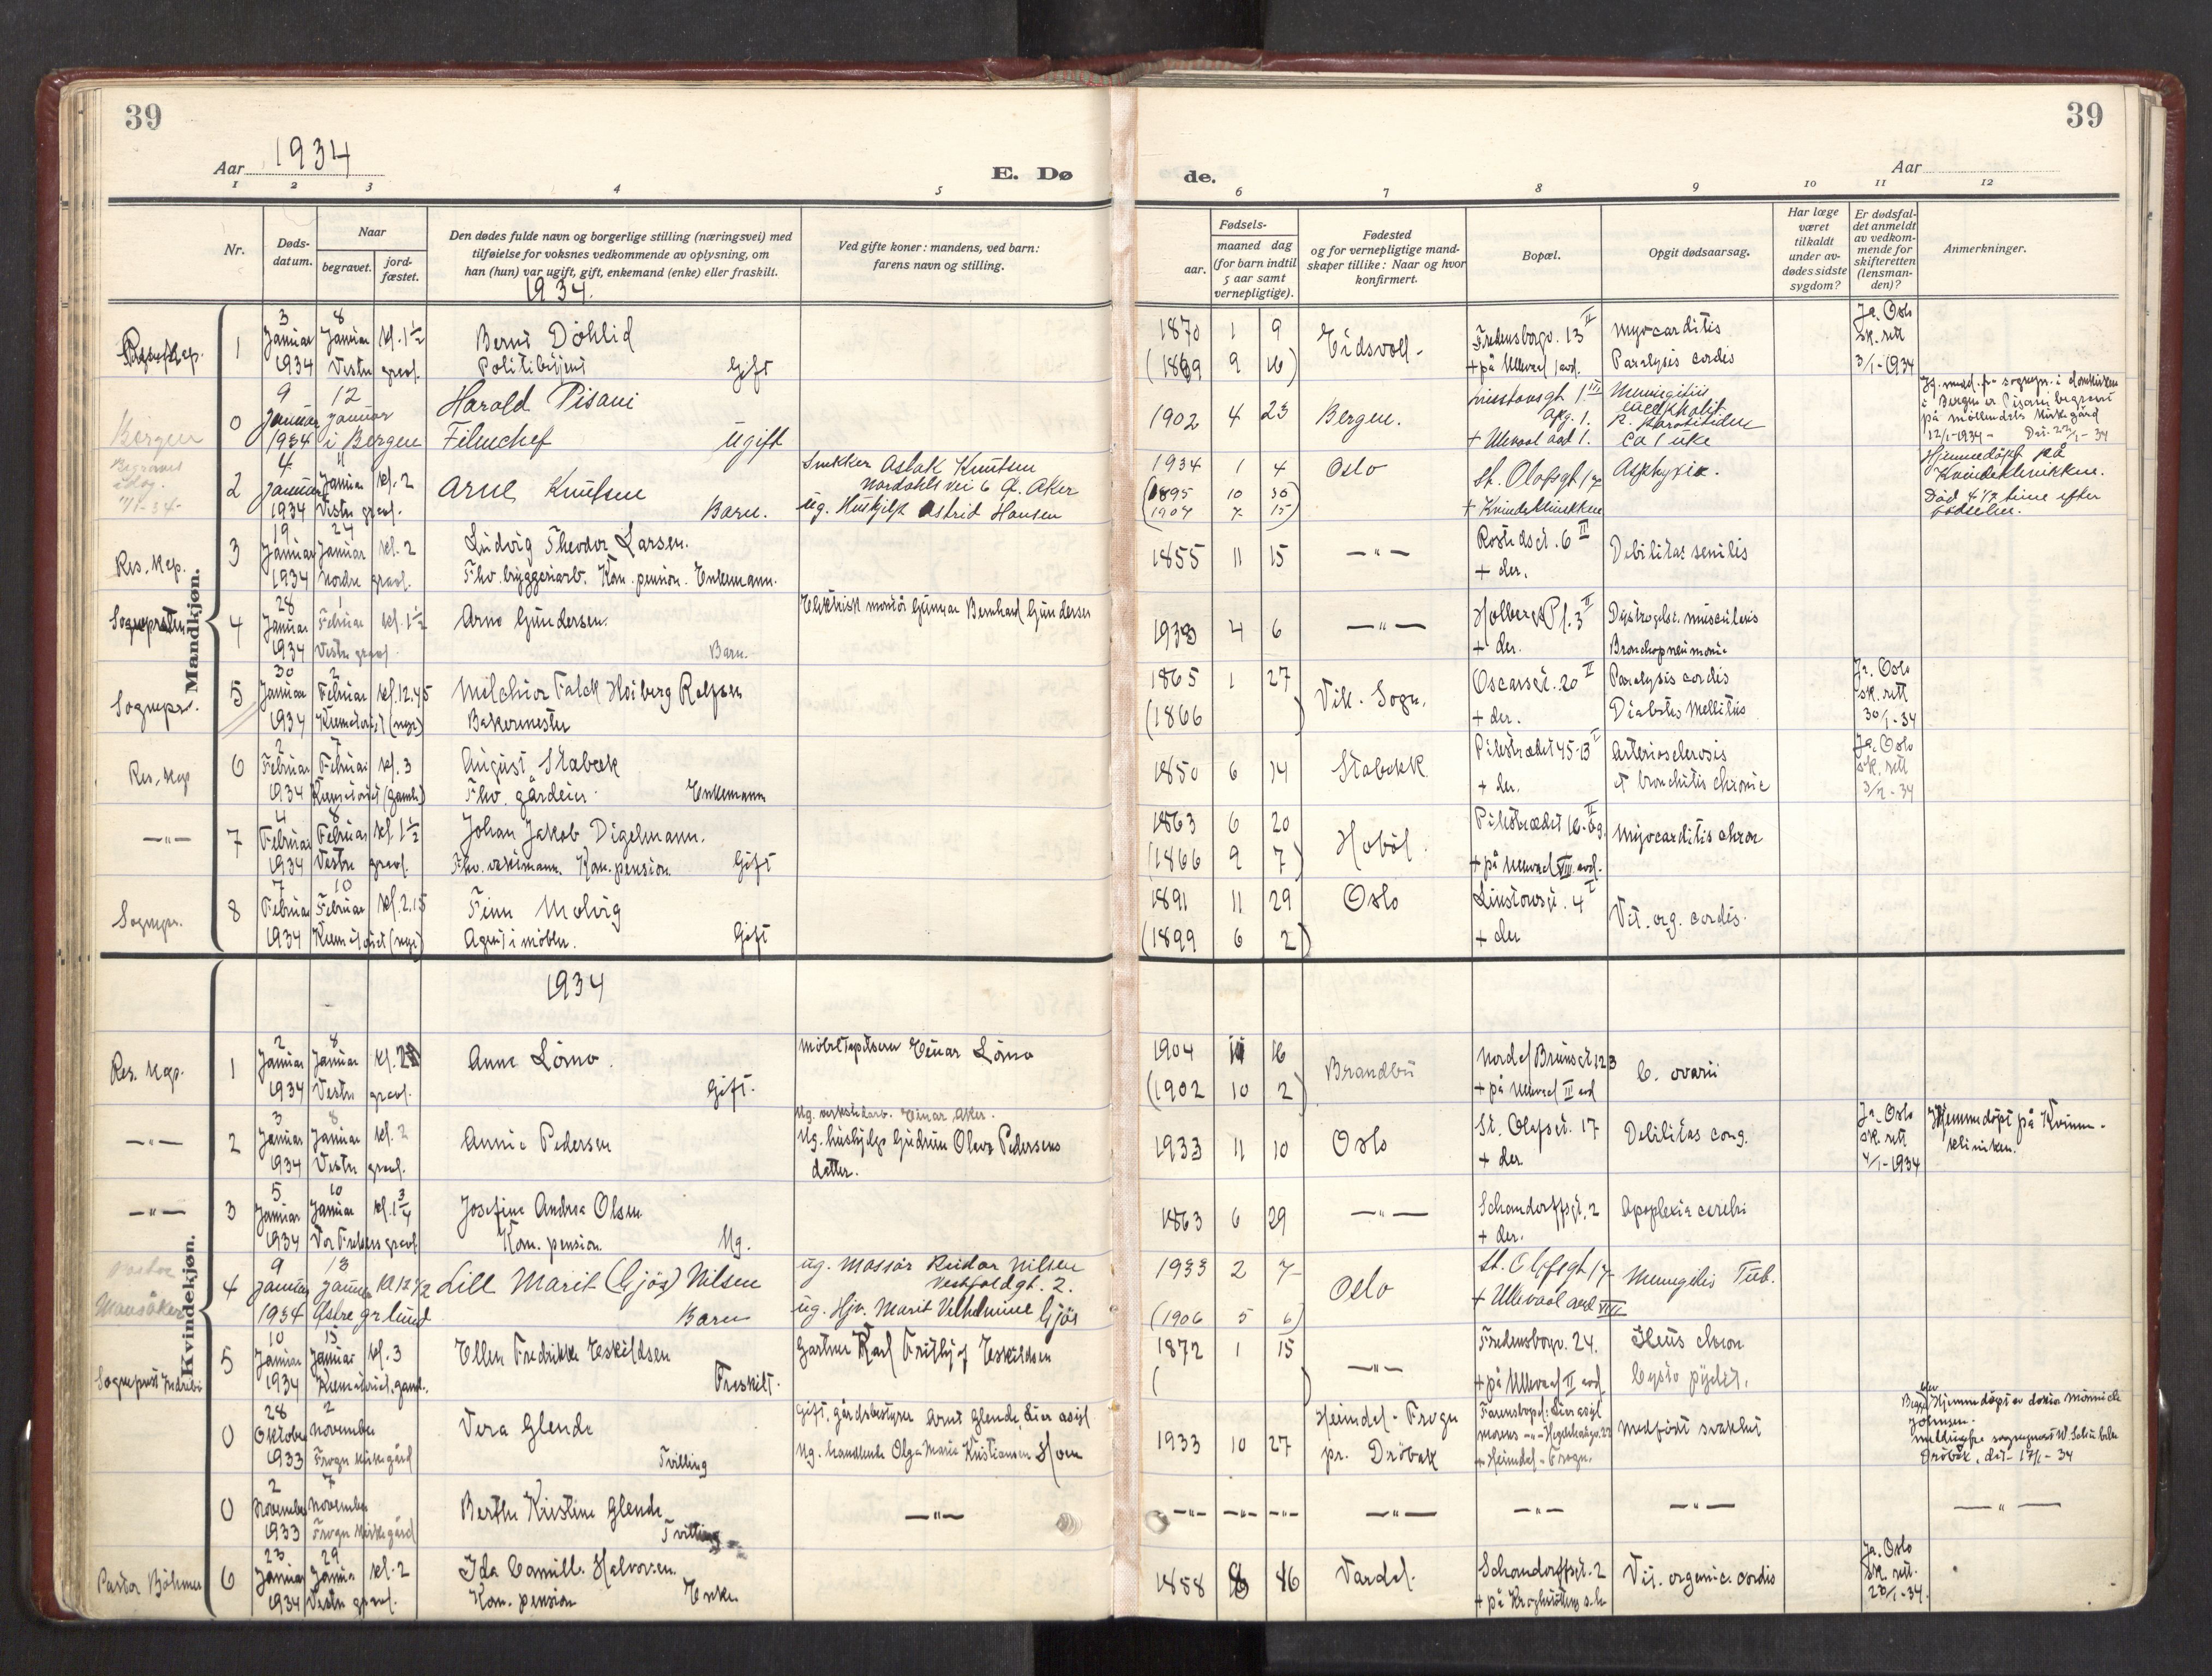 39
39
Aar 1934
E. Dø
de.
Aar
1 2 3 4 5
6 7 8 9 10 11 12
Nr.
Døds-datum.
Naar
begravet.
jord-fæstet.
Den dødes fulde navn og borgerlige stilling (næringsvei) med
tilføielse for voksnes vedkommende av oplysning, om
han (hun) var ugift, gift, enkemand (enke) eller fraskilt.
Ved gifte koner: mandens, ved barn:
farens navn og stilling.
Fødsels-
aar.
maaned dag
(for barn indtil
5 aar samt
vernepligtige).
Fødested
og for vernepligtige mand-
skaper tillike: Naar og hvor
konfirmert.
Bopæl.
Opgit dødsaarsag.
Har læge
været
tilkaldt
under av-
dødes sidste
sygdom?
Er dødsfal-
det anmeldt
av vedkom-
mende for
skifteretten
(lensman-
den)?
Anmerkninger.
1934.
Mandkjøn.
1
3 Januar 1934
8 Januar kl. 1½
Vestre gravl.
Bernt Döhlid
Politibetjent Gift
1870 1 9
(1869 9 16)
Eidsvoll
Fredensborgv. 13 II
+ på Ullevaal 1 avd.
Myocarditis
Paralysis cordis
Ja. Oslo
sk. rett
3/1-1934
Bergen
0
9 Januar 1934
12 Januar
i Bergen
Harald Pisani
Filmchef Ugift
1902 4 23
Bergen.
+ Ullevaal avd 1.
ca 1 uke
12/1-1934
Begravet
idag.
11/1-34
2
4 Januar 1934
11 Januar kl. 2
Vestre gravl.
Arne Knutsen
Barn.
Snekker Aslak Knutsen
Nordahls vei 6 Ø. Aker
ug. Hushjelp Astrid Hansen
1934 1 4
(1895 10 30
1907 7 15)
Oslo
St. Olafsgt 17
+ Kvindeklinikken
Asphyxia.
Hjemmedöpt på
Kvindeklinikken.
Död 4 1/2 time efter
födselen.
Res. Kap.
3
19 Januar 1934
24 Januar kl. 2
Nordre gravl.
Ludvig Theodor Larsen.
Fhv. bryggeriarb. Kom. pension. Enkemann.
1855 11 15
—"—
Rostedsgt. 6 II
+ der.
Debilitas senilis
Sognepresten
4
28 Januar 1934
1 Februar kl. 1½
Vestre gravl.
Arno Gundersen.
Barn.
Elektrisk montör Gunnar Bernhard Gundersen
1933 4 6
—"—
Holbergs Pl. 3 II
+ der.
Bronchopneumonie
Sognepr.
5
30 Januar 1934
2 Februar kl. 12.45
Krematoriet (nye)
Melchior Falck Hoiberg Rolfsen
Bakermester
1865 1 27
(1866 )
Vik. Sogn.
Oscarsgt. 20 II
+ der.
Paralysis cordis
Diabetes Mellitus
Ja. Oslo
sk. rett
30/1-34
Res. Kap
6
2 Februar 1934
7 Februar kl. 3
Krematoriet (gamle)
August Stabæk
Fhv. gårdeier. Enkemann
1850 6 14
Stabekk
Pilestrædet 45-B I
+ der.
Arteriosclerosis
et bronchitis chronic
Ja. Oslo
sk. rett
3/2-34
—"—
7
4 Februar 1934
8 Februar kl. 1½
Vestre gravl.
Johan Jakob Digelmann.
Fhv. vektmann. Kom. pension Gift
1863 6 20
(1866 9 7)
Hobøl.
+ på Ullevaal VIII avd.
Myocarditis chron
Sognepr.
8
7 Februar 1934
10 Februar kl. 2.15
Krematoriet (nye)
Finn Molvig
Agent i möbler. Gift
1891 11 29
(1899 6 2)
Oslo
Linstowsgt. 4 I
+ der
Vit. org. cordis.
1934
Kvindekjøn.
Res. Kap.
1
2 Januar 1934
8 Januar kl. 2
Vestre gravl.
Anne Lömo.
Gift.
Möbeltapetserer Einar Lömo
1904 11 16
(1902 10 2)
Brandbu
Nordal Brunsgt. 12 3
+ på Ullevaal III avd
C. ovarii
—"—
2
3 Januar 1934
8 Januar kl. 2
Vestre gravl.
Annie Pedersen
Ug. verkstedarb. Einar Aker.
Ug. hushjelp Gudrun Olava Pedersens
datter.
1933 11 10
Oslo
St. Olafsgt. 17
+ der
Debilitas cong.
Ja. Oslo
sk. rett
4/1-1934
Hjemmedöpt på Kvinne-
kliniken.
—"—
3
5 Januar 1934
10 Januar kl. 1¾
Vor Frelsers gravl.
Josefine Andrea Olsen
Kom. pension. Ug.
1863 6 29
—"—
Schandorffsgt. 2
+ der.
Apoplexia cerebri
Pastor
Mansåker
4
9 Januar 1934
13 Januar Kl 12 1/2
Östre gr lund
Lill Marit (Gjös) Nilsen
Barn
ug. Massör Reidar Nilsen
Vestfoldgt. 2.
ug. Hjv. Marit Vilhelmine Gjös
1933 2 7
(1906 5 6)
Oslo
St. Olafsgt 17
+ Ullevaal avd VIII
Meningitis Tub.
5
10 Januar 1934
15 Januar kl. 3
Krematoriet, gamle.
Ellen Fredrikke Eskildsen
Fraskilt.
Gartner Karl Fritjof Eskildsen
1872 1 15
( )
—"—
Fredensborgv. 24.
+ på Ullevaal II avd.
Ileus chron
Cysto pyelit.
0
28 Oktober 1933
2 November
Frogn kirkegård
Vera Glende
Tvilling
Gift. gårdsbestyrer Arnt Glende, Lier asyl
Ug. handlende Olga Marie Kristiansen Hoen
1933 10 27
Heimdal - Frogn
pr. Dröbak
+ Heimdal - Frogn.
Medfödt svakhet
Johnsen.
Dröbak, dat- 17/1-34
0
2 November 1933
7 November
Frogn kirkegård
Berthe Kristine Glende
Tvilling
—"—
—"— —"— —"— —"— —"— —"— —"—
Pastor Böhmer
6
23 Januar 1934
29 Januar kl. 2
Vestre gravl.
Ida Camilla Halvorsen.
Kom. pension Enke
1858 8 16
Vardal.
Schandorffsgt. 2
+ på Krogstöttens s.h
Vit. organic. cordis
Ja. Oslo
sk. rett.